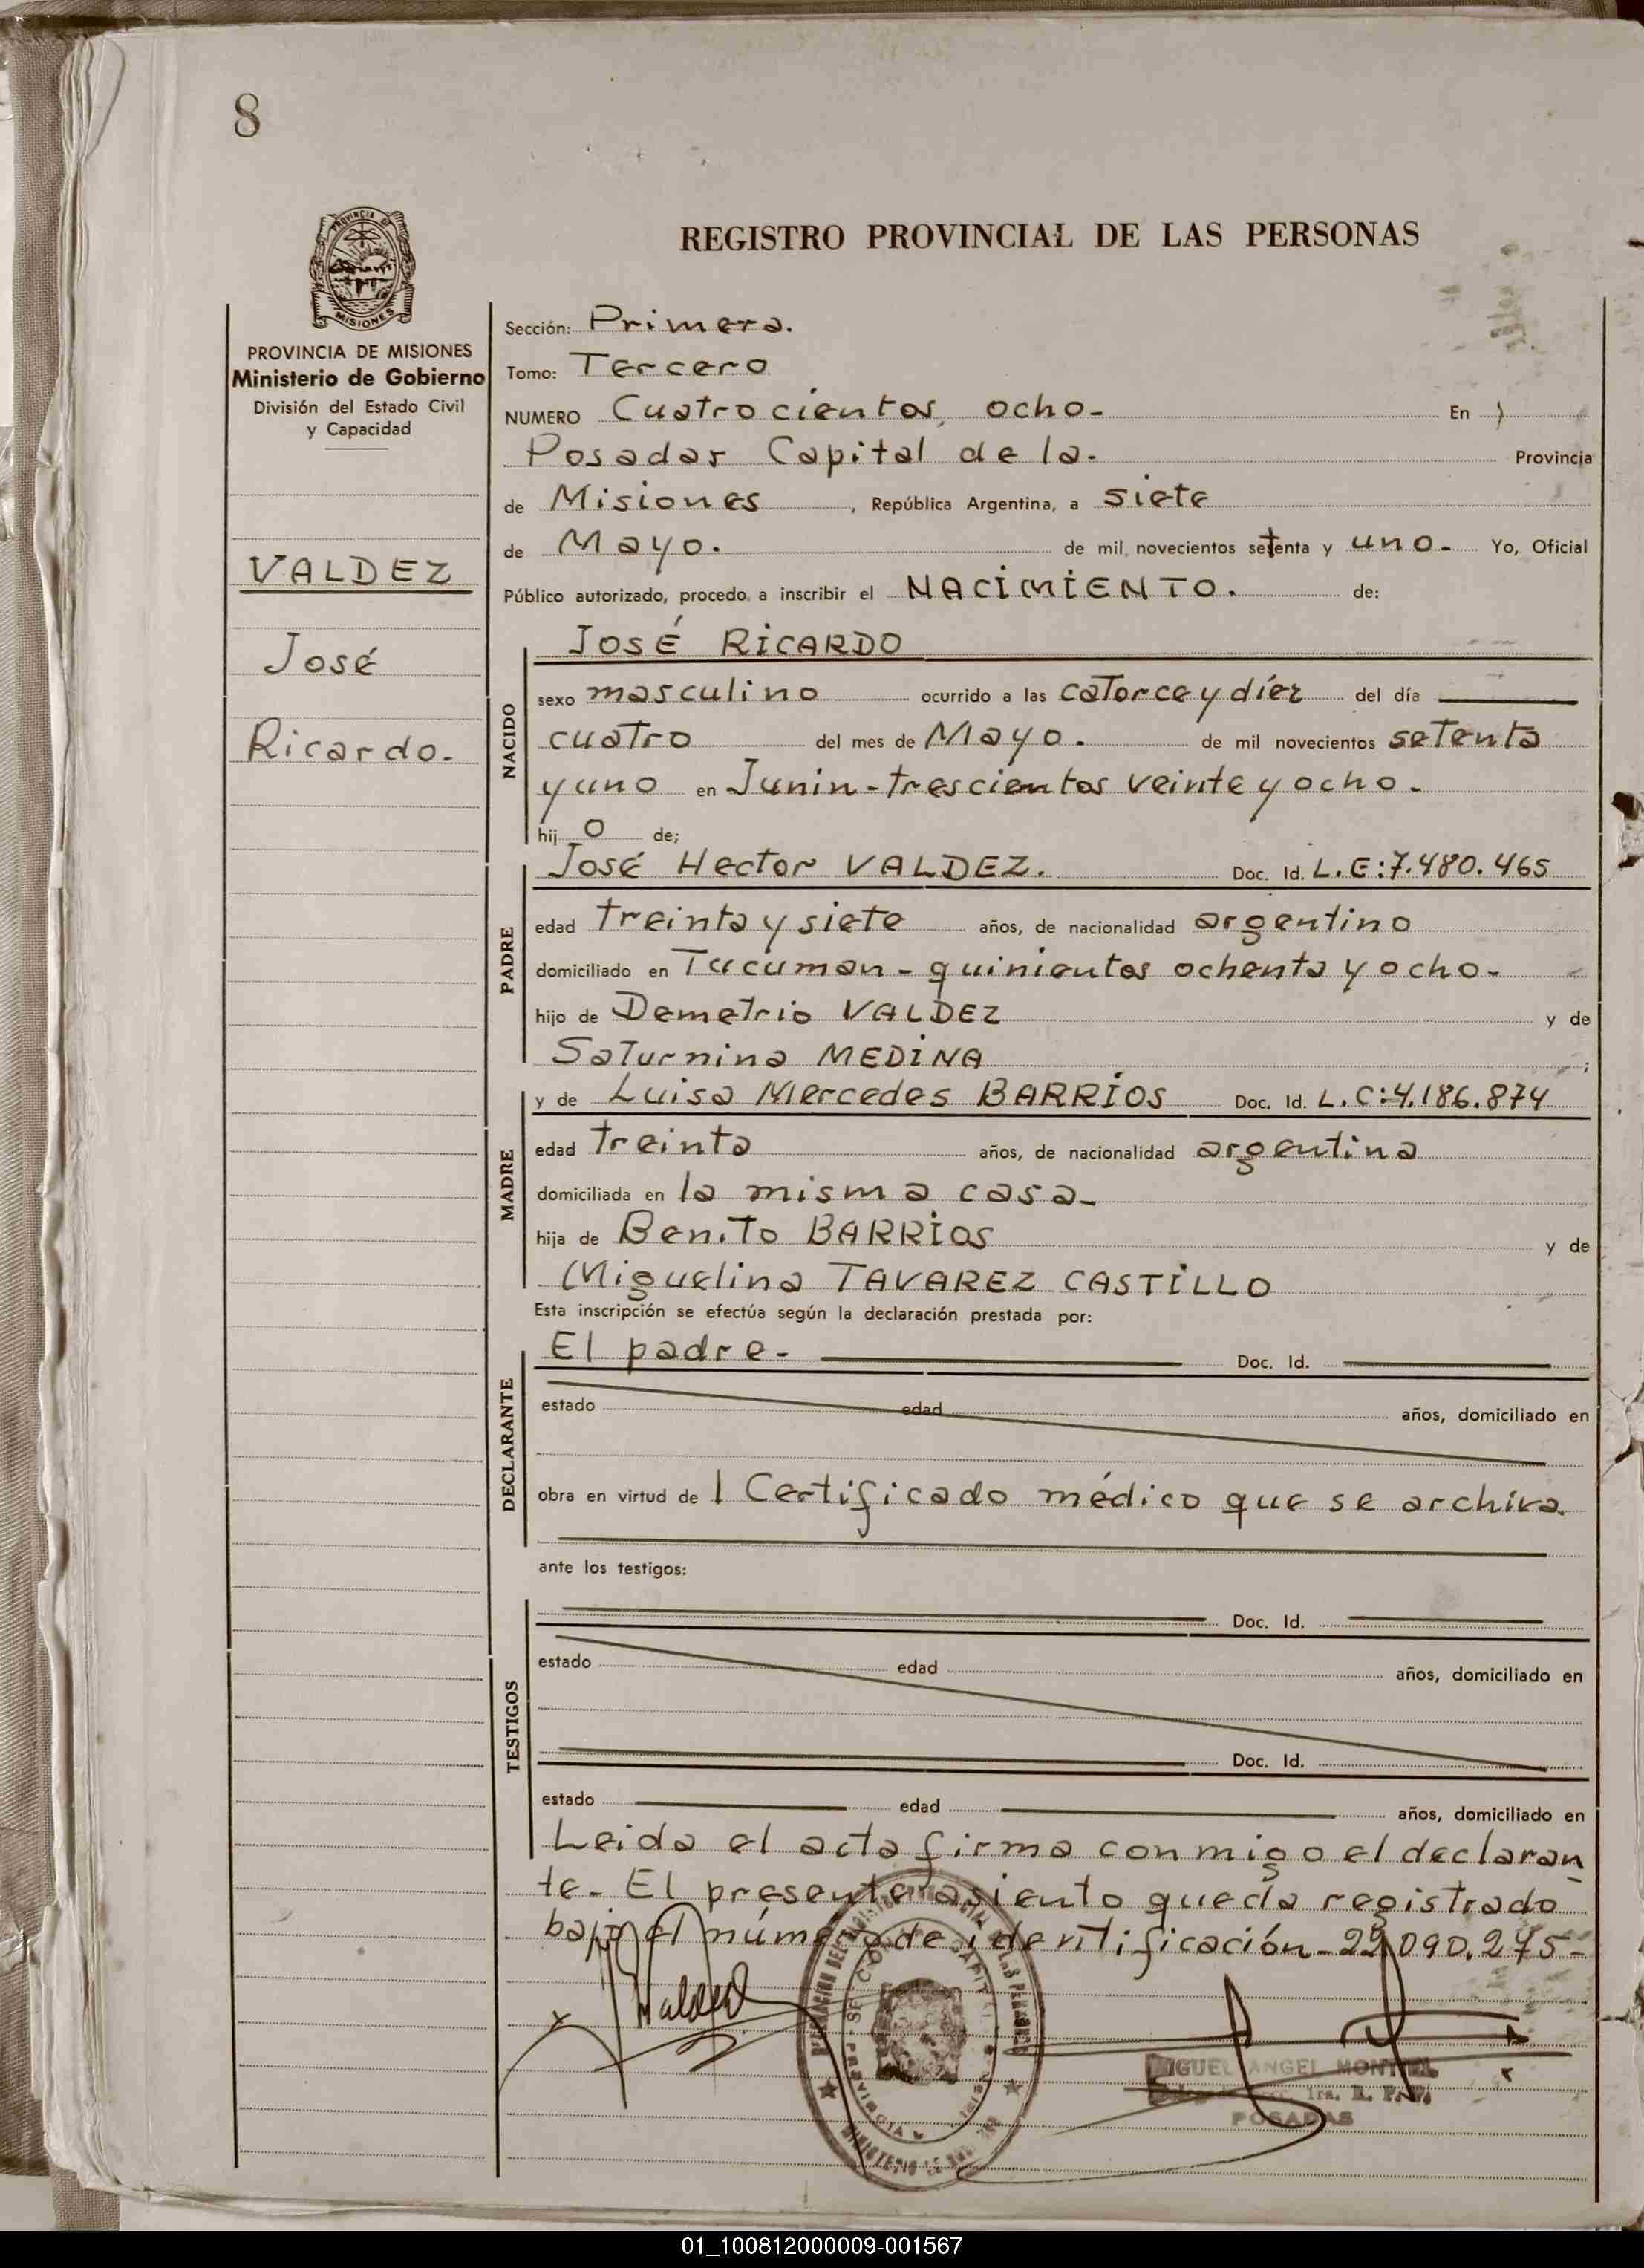 8
PROVINCIA DE
MISIONES
PROVINCIA DE MISIONES
Ministerio de Gobierno
División del Estado Civil
y Capacidad
VALDEZ
José
Ricardo.
REGISTRO PROVINCIAL DE LAS PERSONAS
Sección: Primera.
Tomo: Tercero
NUMERO Cuatrocientos ocho- En
Posadas Capital de la- Provincia
de Misiones, República Argentina, a siete
de Mayo. de mil novecientos setenta y uno- Yo, Oficial
Público autorizado, procedo a inscribir el NACIMIENTO. de:
JOSÉ RICARDO
NACIDO
sexo masculino ocurrido a las catorce y diez del día
cuatro del mes de Mayo. de mil novecientos setenta
y uno en Junin-trescientos veinte y ocho-
hij o de;
PADRE
José Hector VALDEZ. Doc. Id. L.E:7.480.465
edad treinta y siete años, de nacionalidad argentino
domiciliado en Tucuman-quinientos ochenta y ocho-
hijo de Demetrio VALDEZ y de
Saturnina MEDINA ;
MADRE
y de Luisa Mercedes BARRIOS Doc. Id. L.C:4.186.874
edad treinta años, de nacionalidad argentina
domiciliada en la misma casa-
hija de Benito BARRIOS y de
Miguelina TAVAREZ CASTILLO
Esta inscripción se efectúa según la declaración prestada por:
DECLARANTE
El padre- Doc. Id.
estado edad años, domiciliado en
obra en virtud de l Certificado médico que se archiva
ante los testigos:
TESTIGOS
Doc. Id.
estado edad años, domiciliado en
Doc. Id.
estado edad años, domiciliado en
Leida el acta firma conmigo el declaran
te- El presente asiento queda registrado
bajo el número de identificación-22.090.275-
Valdez
MIGUEL ANGEL
POSADAS
01_100812000009-001567